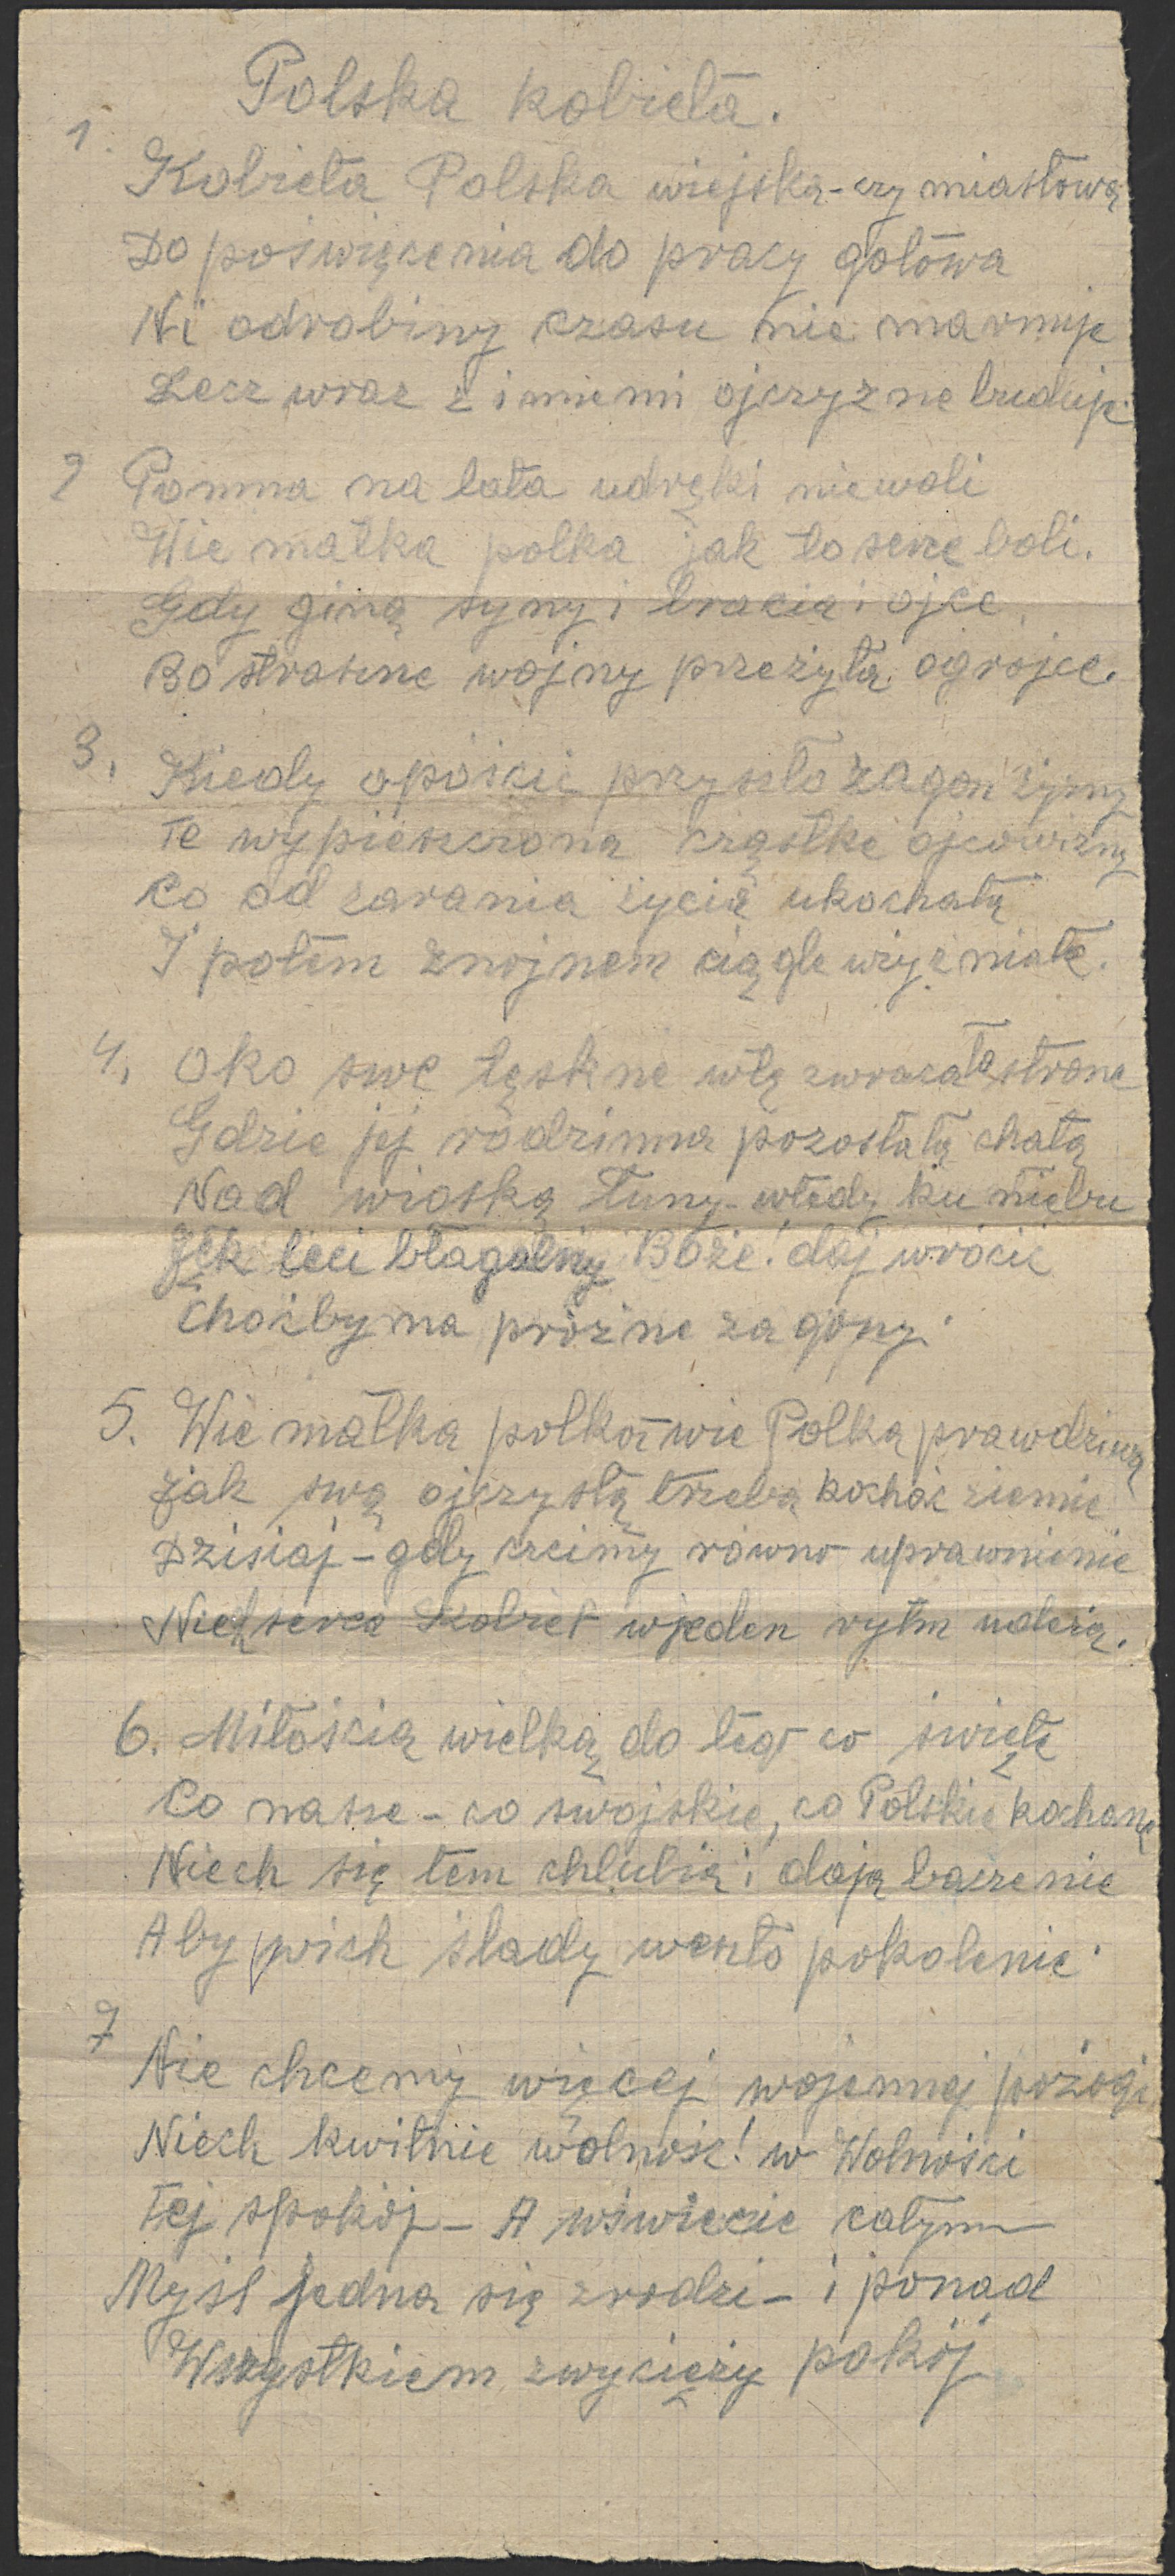 Polska kobieta.
1.
Kobieta Polska wiejska - czy miastowa
Do poświęcenia do pracy gotowa
Ni odrobiny czasu nie marnuje
Lecz wraz z innemi ojczyzne buduje.
2 Pomna na lata udręki niewoli
Wie matka polka jak to serce boli.
Gdy giną syny i bracia i ojce
Bo straszne wojny przeżyła ogrojce.
3.
Kiedy opóścić przyszło zagon żyzny
Te wypieszczona cząstke ojcowizny
Co od zarania życia ukochała
I potem znojnem ciągle użyźniałe.
4. Oko swe tęskne w tę zwracała strone
Gdzie jej rodzinna pozostała chata
Nad wioską łuny - wtedy ku niebu
Jęk leci błagalny Boże! daj wrócić
Choćby na próżne zagony.
5. Wie matka polka - wie Polka prawdziwa
Jak swą ojczystą trzeba kochać ziemie
Dzisiaj - gdy czcimy równo uprawnienie
Niech serca kobiet w jeden rytm uderzą.
6. Miłością wielką do tego co święte
Co nasze - co swojskie, co Polskie kochane
Niech się tem chlubią i dają baczenie
Aby w ich ślady weszło pokolenie.
7
Nie chcemy więcej wojennej pożogi
Niech kwitnie wolność! w Wolności
tej spokój - A w świecie całym
Myśl jedna się zrodzi - i ponad
Wszystkiem zwycięży pokój